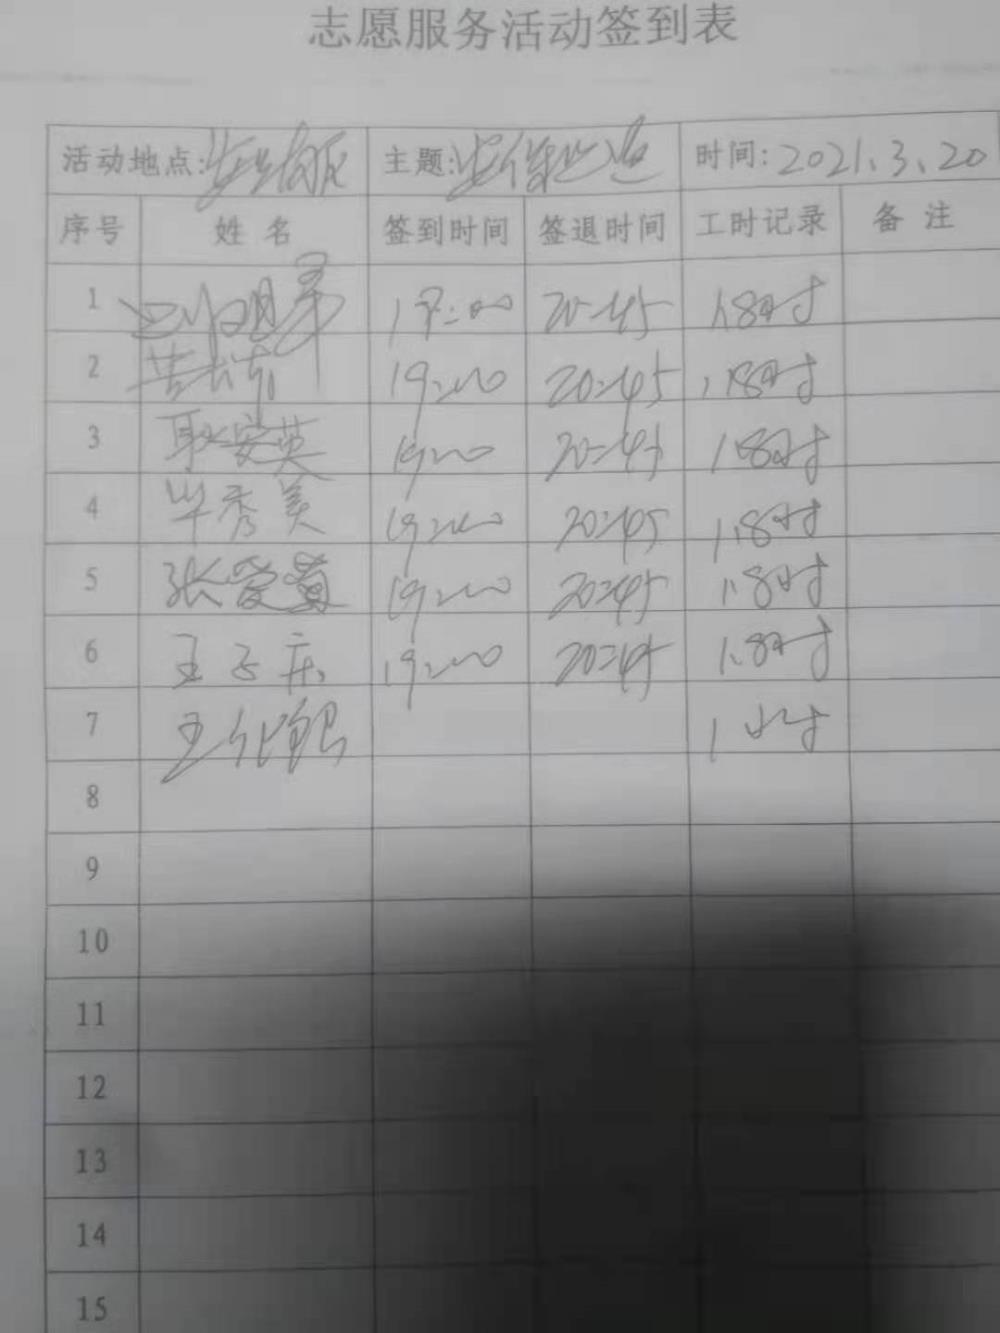 志愿服务活动签到表
活动地点: 主题: 时间: 2021.3.20
序号 姓名 签到时间 签退时间 工时记录 备注
1 19:00 20:45 1.8时
2 19:00 20:45 1.8时
3 耿安英 19:00 20:45 1.8时
4 毕秀美 19:00 20:45 1.8时
5 张爱 19:00 20:45 1.8时
6 王子庆 19:00 20:45 1.8时
7 王 1小时
8
9
10
11
12
13
14
15